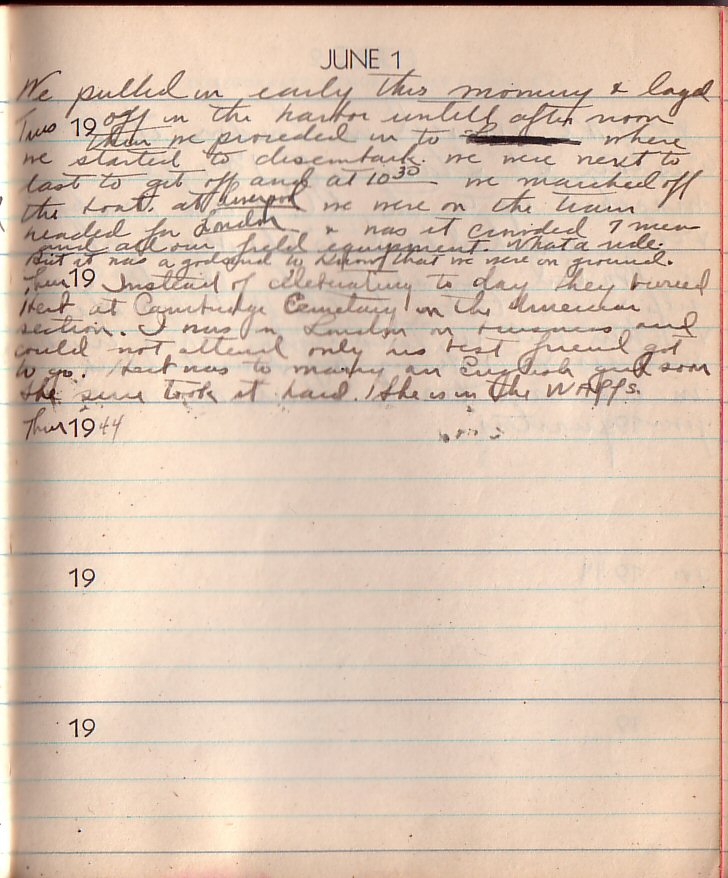 JUNE 1
We pulled in early this morning & layd
Tues 19 off in the harbor untill after noon
then we proceded in to where
we started to disembark. we were next to
last to get off and at 10 30 we marched off
the boat. at Liverpool we were on the train
headed for London & was it crowded 7 men
and all our field equipment. What a ride.
But it was a godsend to know that we were on ground.
Thur 19 Instead of celebrating to day they buried
Herb at Cambridge Cemetary in the American
section. I was in London on business and
could not attend only his best friend got
to go. Herb was to marry an English girl soon
she sure took it hard. She is in the WAffs.
Thur 19 44
19
19